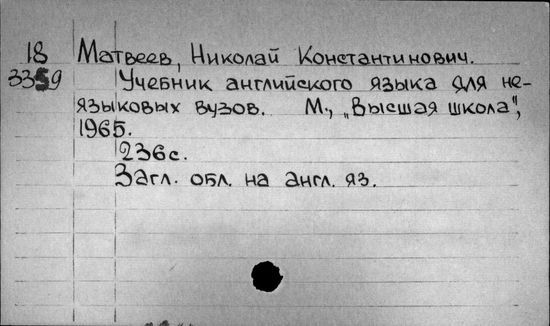 18 Матвеев, Николай Константинович.
3359 Учебник английского языка для не-
языковых вузов. М., „Высшая школа",
1965.
236с.
Загл. обл. на англ. яз.